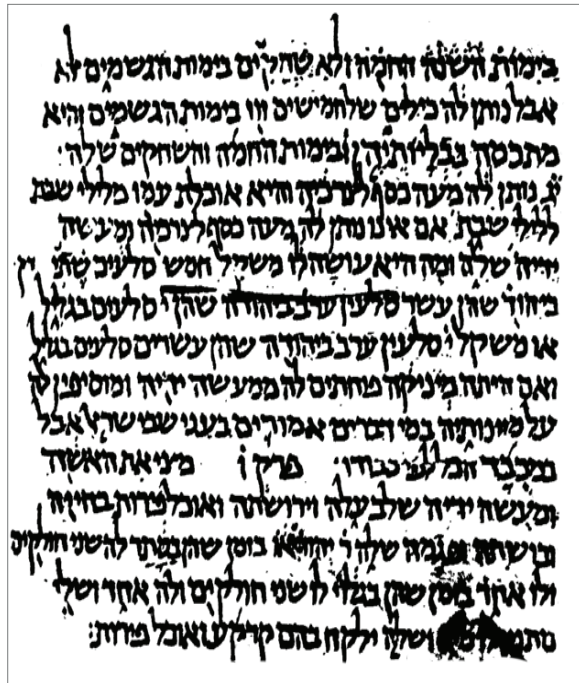 בימות השנה החמה ולא שחקים בימות הגשמים לא
אבל נותן לה כילים שלחמישים זוז בימות הגשמים והיא
מתכסה בבליותיהן ובימות החמה והשחקים שלה:
נותן לה מעה כסף לצרכיה והיא אוכלת עמו מלילי שבת
ללילי שבת אם אינו נותן לה מעה כסף לצורכה ומעשה
ידיה שלה ומה היא עושה לו משקל חמש סלעים שתי
ביהוד שהן עשר סלעין ערב ביהודה שהן י סלעים בגליל
או משקל י סלעין ערב ביהודה שהן עשרים סלעים בגליל
ואם הייתה מיניקה פוחתים לה ממעשה ידיה ומוסיפין לה
על מזונותיה במי דברים אמורים בעני שבישראל אבל
במכבד הכל לפי כבודו: פרק ו מציאת האשה
ומעשה ידיה שלבעלה וירושתה ואוכל פירות בחייה
ובושתה ופגמה שלה ר יהודה בזמן שהן בסתר לה שני חולקים
ולו אחד בזמן שהן בגלוי לו שני חולקים ולה אחד ושלו
ושלה ילקח בהם קרקע ואוכל פירות: